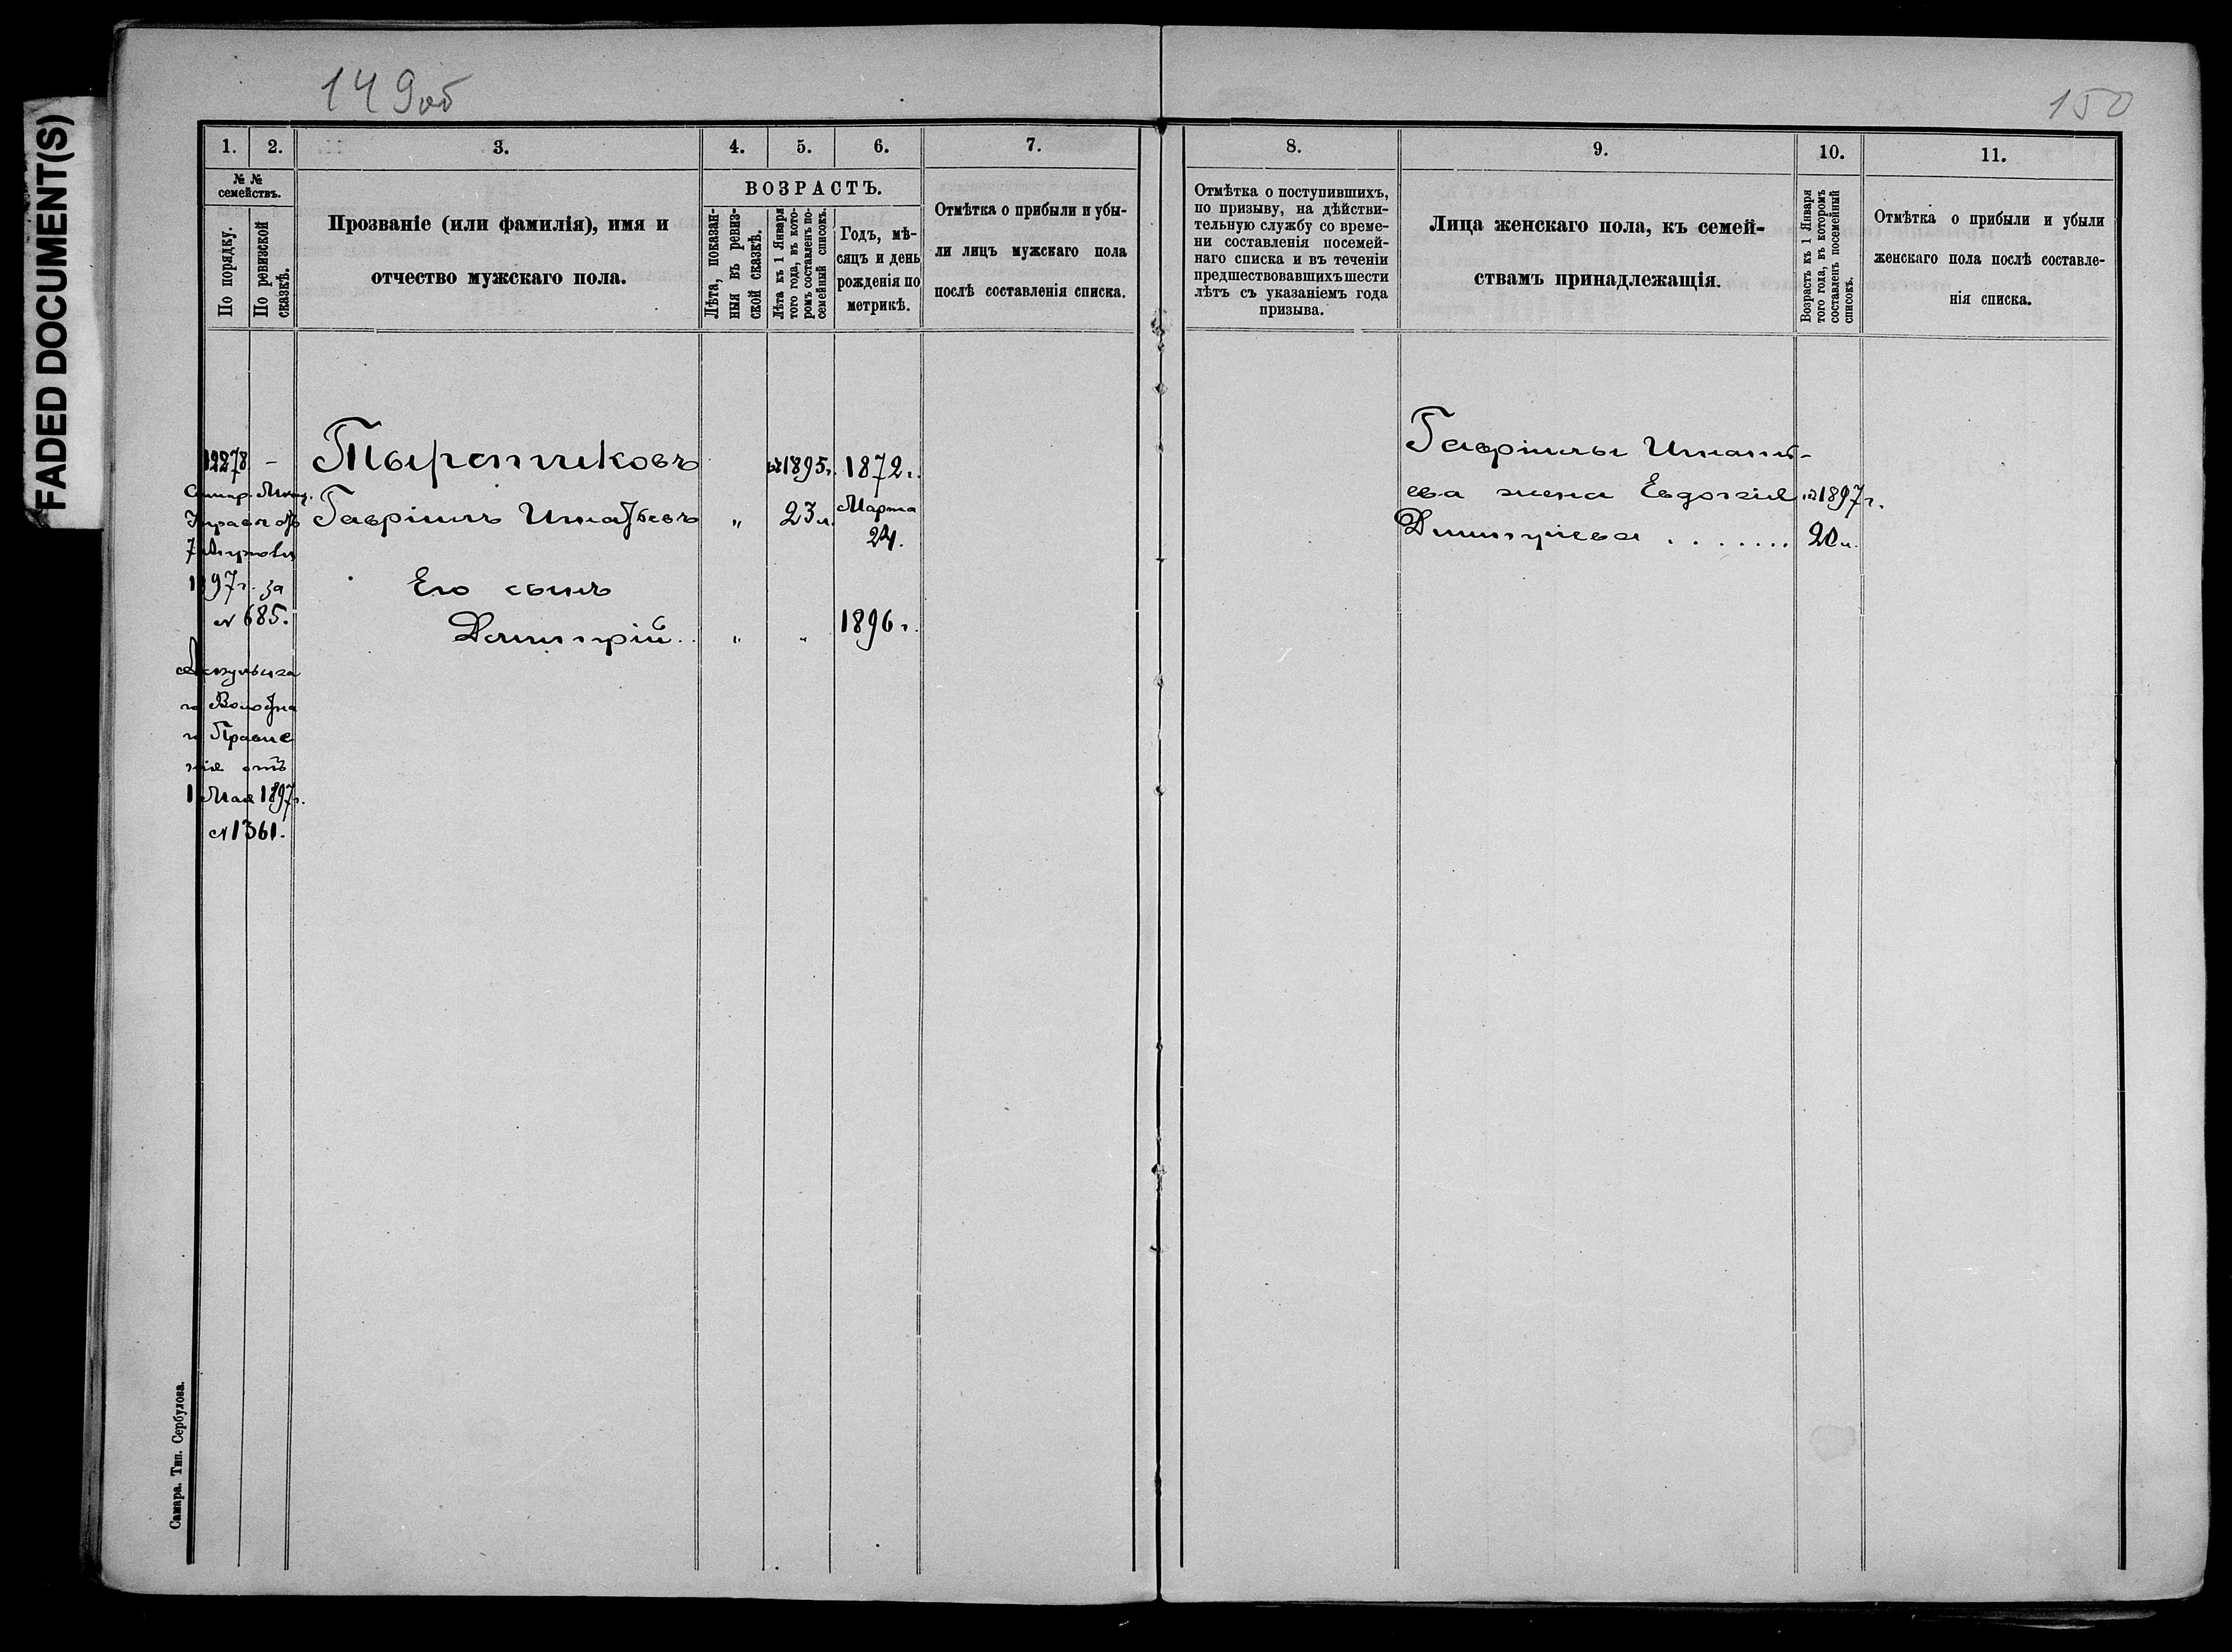 FADED DOCUMENT(S)
149об
150
1.
2.
3.
4.
5.
6.
7.
8.
9.
10.
11.
№ №
семействъ.
По порядку.
По ревизской
сказкѣ.
Прозваніе (или фамилія), имя и
отчество мужскаго пола.
ВОЗРАСТЪ.
Лѣта, показан-
ныя въ ревиз-
ской сказкѣ.
Лѣта къ 1 Января
того года, въ кото-
ромъ составленъ по-
семейный списокъ.
Годъ, мѣ-
сяцъ и день
рожденія по
метрикѣ.
Отмѣтка о прибыли и убы-
ли лицъ мужскаго пола
послѣ составленія списка.
Отмѣтка о поступившихъ,
по призыву, на дѣйстви-
тельную службу со време-
ни составленія посемей-
наго списка и въ теченіи
предшествовавшихъ шести
лѣтъ съ указаніемъ года
призыва.
Лица женскаго пола, къ семей-
ствамъ принадлежащія.
Возрастъ къ 1 Января
того года, въ которомъ
составленъ посемейный
списокъ.
Отмѣтка о прибыли и убыли
женскаго пола послѣ составле-
нія списка.
12278 -
7
1897г. за
№ 685.
го Правле
нія отъ
1 Мая 1897г.
№ 1361.
1895г. 1872г.
Гавріилъ " 23 л. Марта
24.
Его сынъ
Димитрій.. " " 1896г.
Гавріила
ева жена Евдокія 1897г.
Димитріева . . . . . . . 20 л.
Самара. Тип. Сербулова.